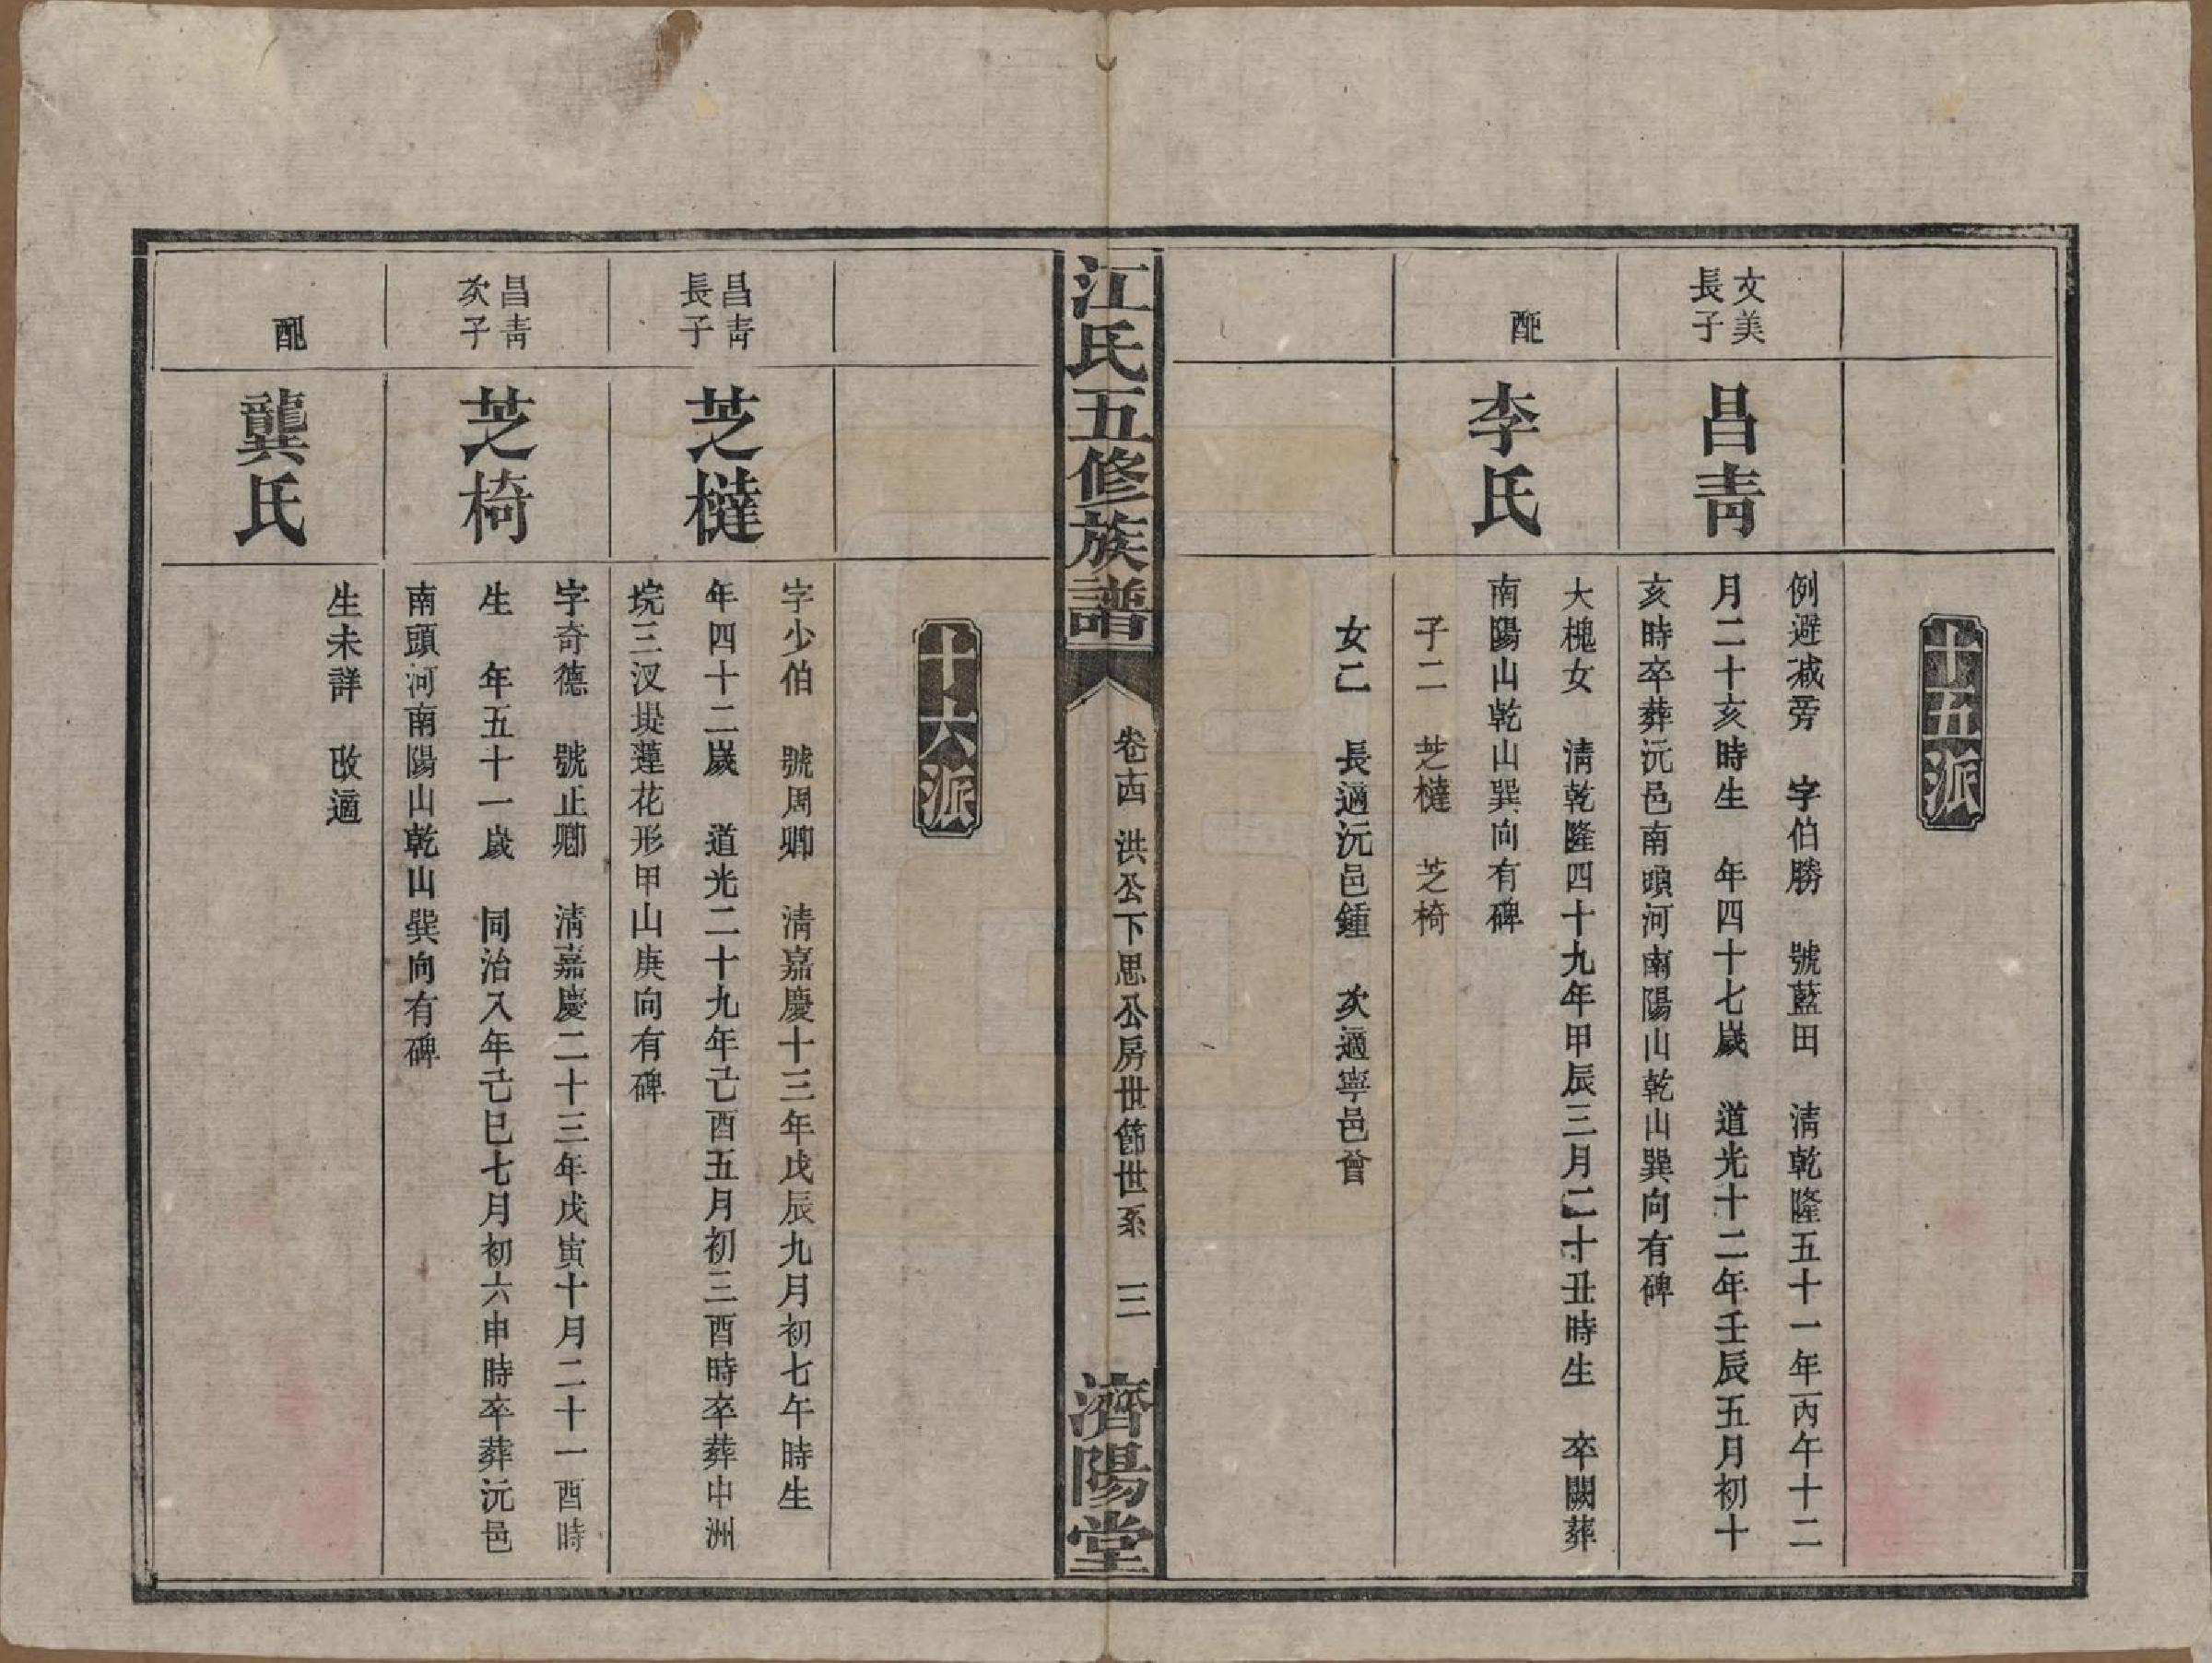 十五派
文美
長子
昌青
例避減旁　字伯勝　號藍田　清乾隆五十一年丙午十二
月二十亥時生　年四十七歲　道光十二年壬辰五月初十
亥時卒葬沅邑南頭河南陽山乾山巽向有碑
配
李氏
大槐女　清乾隆四十九年甲辰三月二十丑時生　卒闕葬
南陽山乾山巽向有碑
子二　芝㯚　芝椅
女二　長適沅邑鍾　次適寧邑曾
江氏五修族譜
卷十四　洪公下思公房世節世系　三
濟陽堂
十六派
昌青
長子
芝㯚
字少伯　號周卿　清嘉慶十三年戊辰九月初七午時生
年四十二歲　道光二十九年己酉五月初三酉時卒葬中洲
垸三汊堤蓮花形甲山庚向有碑
昌青
次子
芝椅
字奇德　號正卿　清嘉慶二十三年戊寅十月二十一酉時
生　年五十一歲　同治八年己巳七月初六申時卒葬沅邑
南頭河南陽山乾山巽向有碑
配
龔氏
生未詳　改適